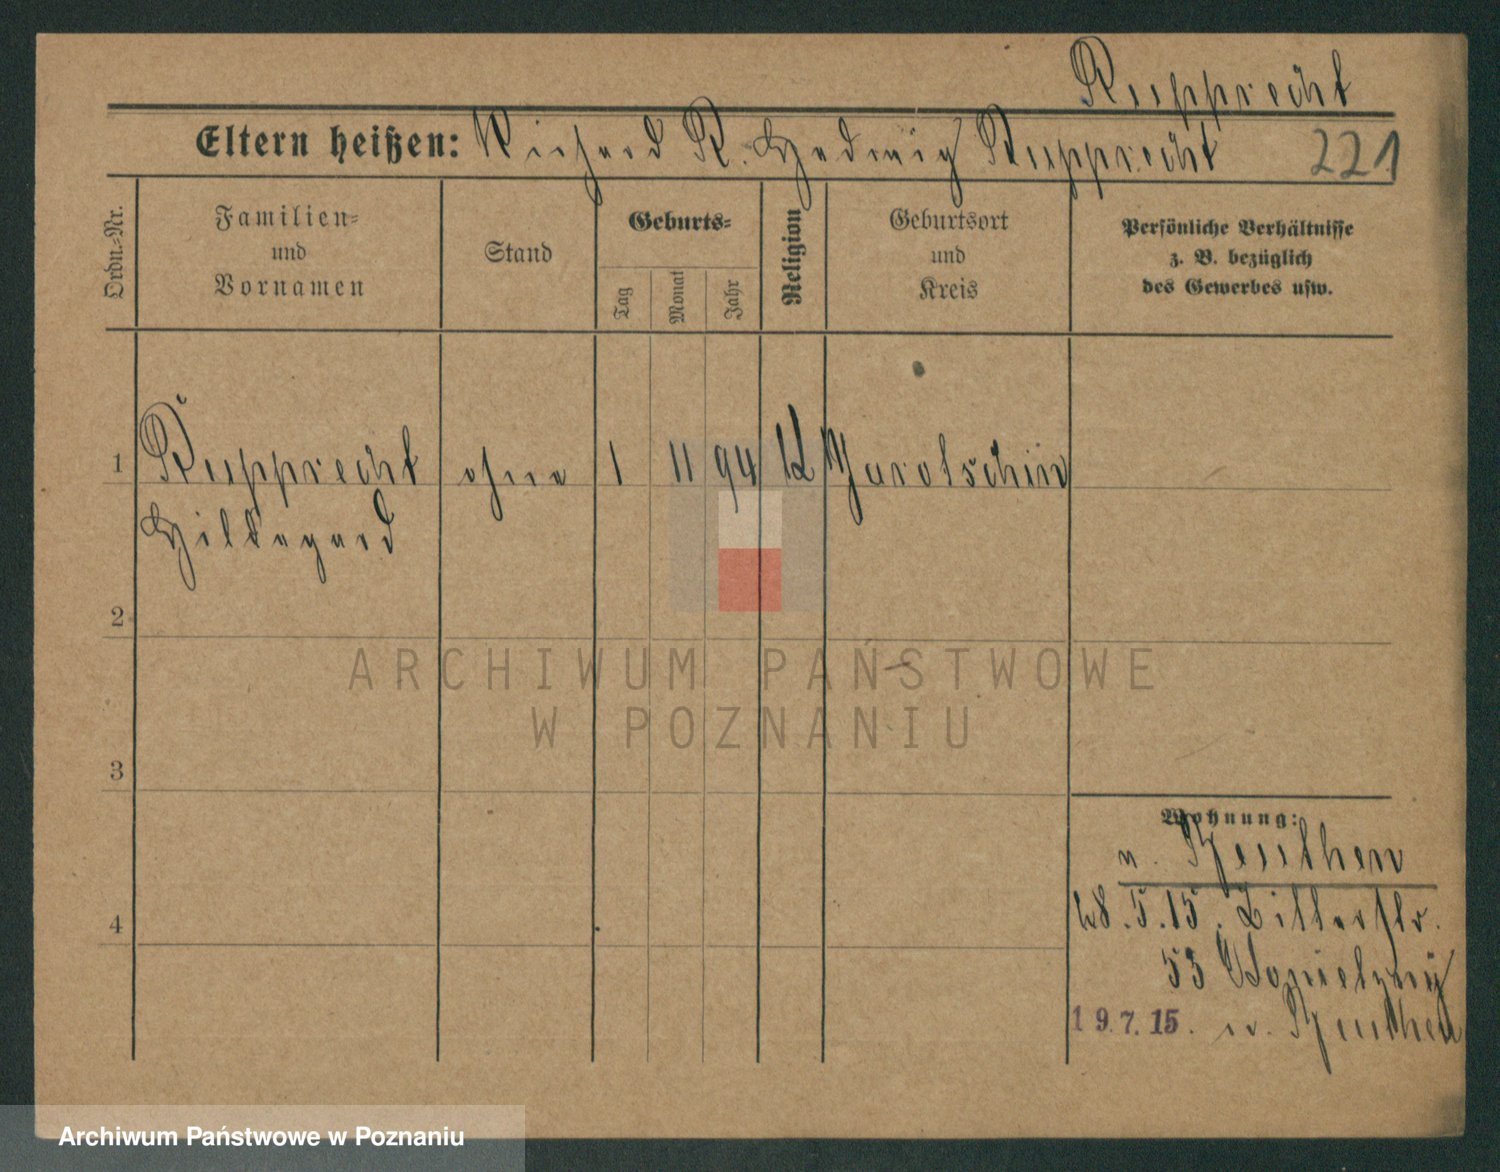 Rupprecht
Eltern heißen: Richard R. Hedwig Rupprecht 221
Ordn.-Nr.
Familien-
und
Vornamen
Stand
Geburts-
Tag
Monat
Jahr
Religion
Geburtsort
und
Kreis
Persönliche Verhältnisse
z. B. bezüglich
des Gewerbes usw.
1 Rupprecht ohne 1 11 94 Jarotschin
Hildegard
2
3
4
Wohnung:
n. Beuthen
28.5.15. Ritterstr.
53
19.7.15. Beuthen
ARCHIWUM PAŃSTWOWE
W POZNANIU
Archiwum Państwowe w Poznaniu